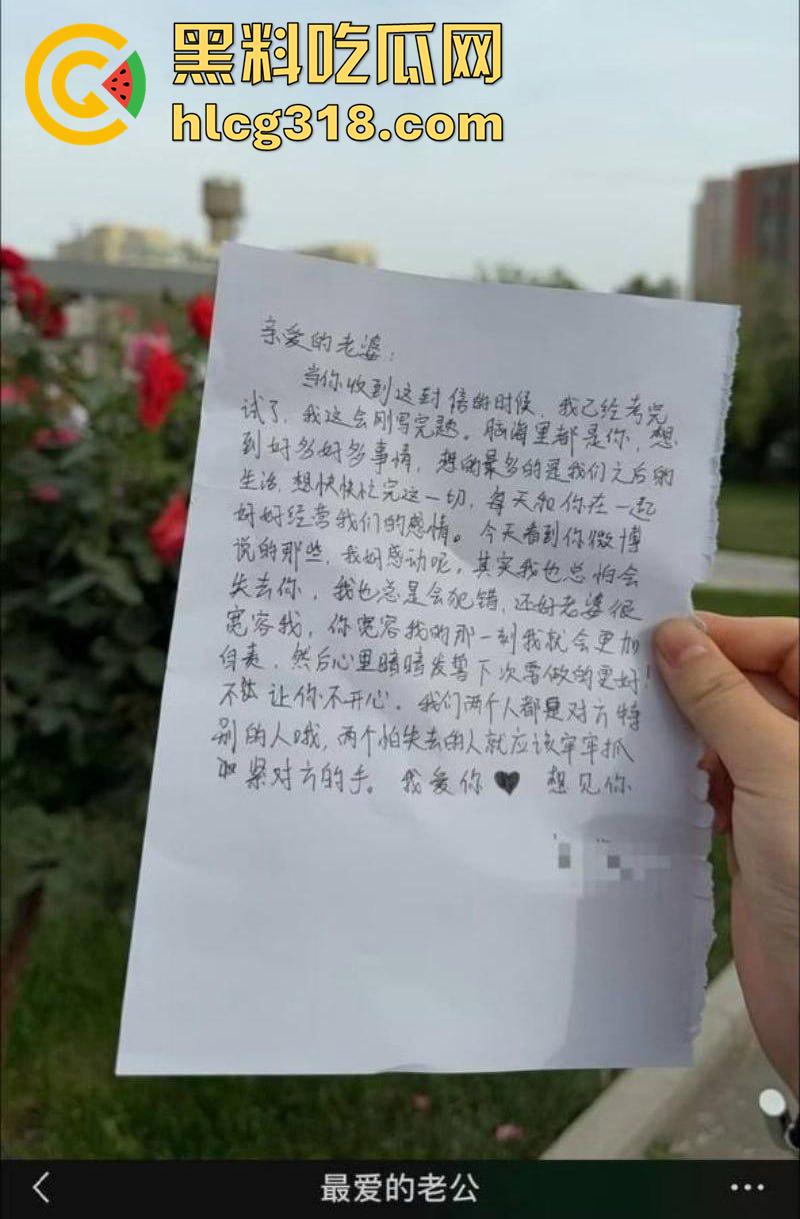 黑料吃瓜网
hlcg318.com
亲爱的老婆：
当你收到这封信的时候，我已经考完
试了，我这会刚写完题。脑海里都是你，想
到好多好多事情，想的最多的是我们之后的
生活，想快快忙完这一切，每天和你在一起
好好经营我们的感情。今天看到你微博
说的那些，我好感动呢，其实我也总怕会
失去你，我也总是会犯错，还好老婆很
宽容我，你宽容我的那一刻我就会更加
自责，然后心里暗暗发誓下次要做的更好！
不让你不开心。我们两个人都是对方特
别的人哦，两个怕失去的人就应该牢牢抓
紧对方的手。我爱你♥ 想见你
最爱的老公